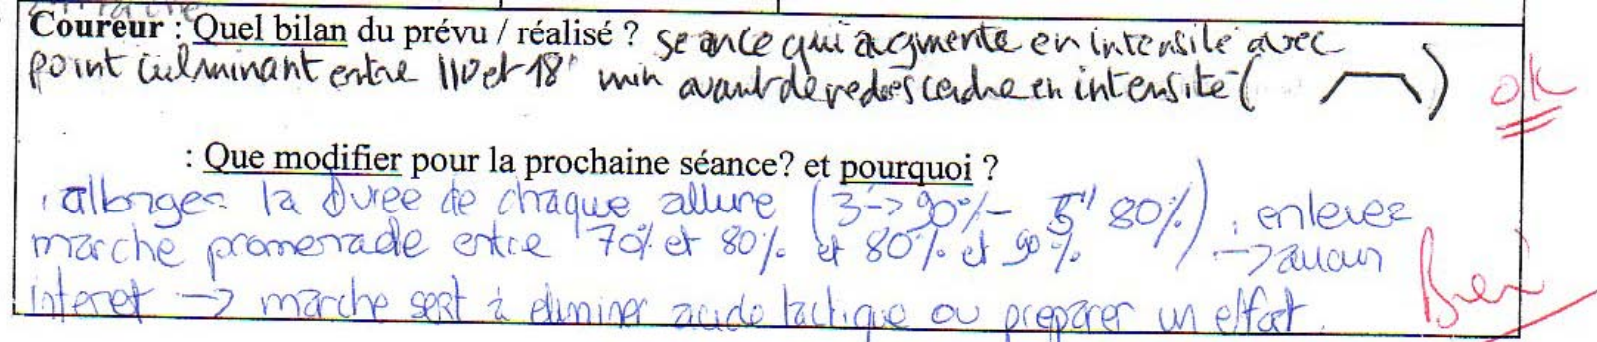 Coureur : Quel bilan du prévu / réalisé ? seance qui augmente en intensité avec
point culminant entre 11 et 18' min avant de redescendre en intensité ( )
ok
: Que modifier pour la prochaine séance? et pourquoi ?
. allonger la durée de chaque allure (3'-> 90%- 5' 80%) . enlever
marche promenade entre 70% et 80% et 80% et 90% -> aucun
interet -> marche sert à eliminer acide lactique ou preparer un effort.
Bien